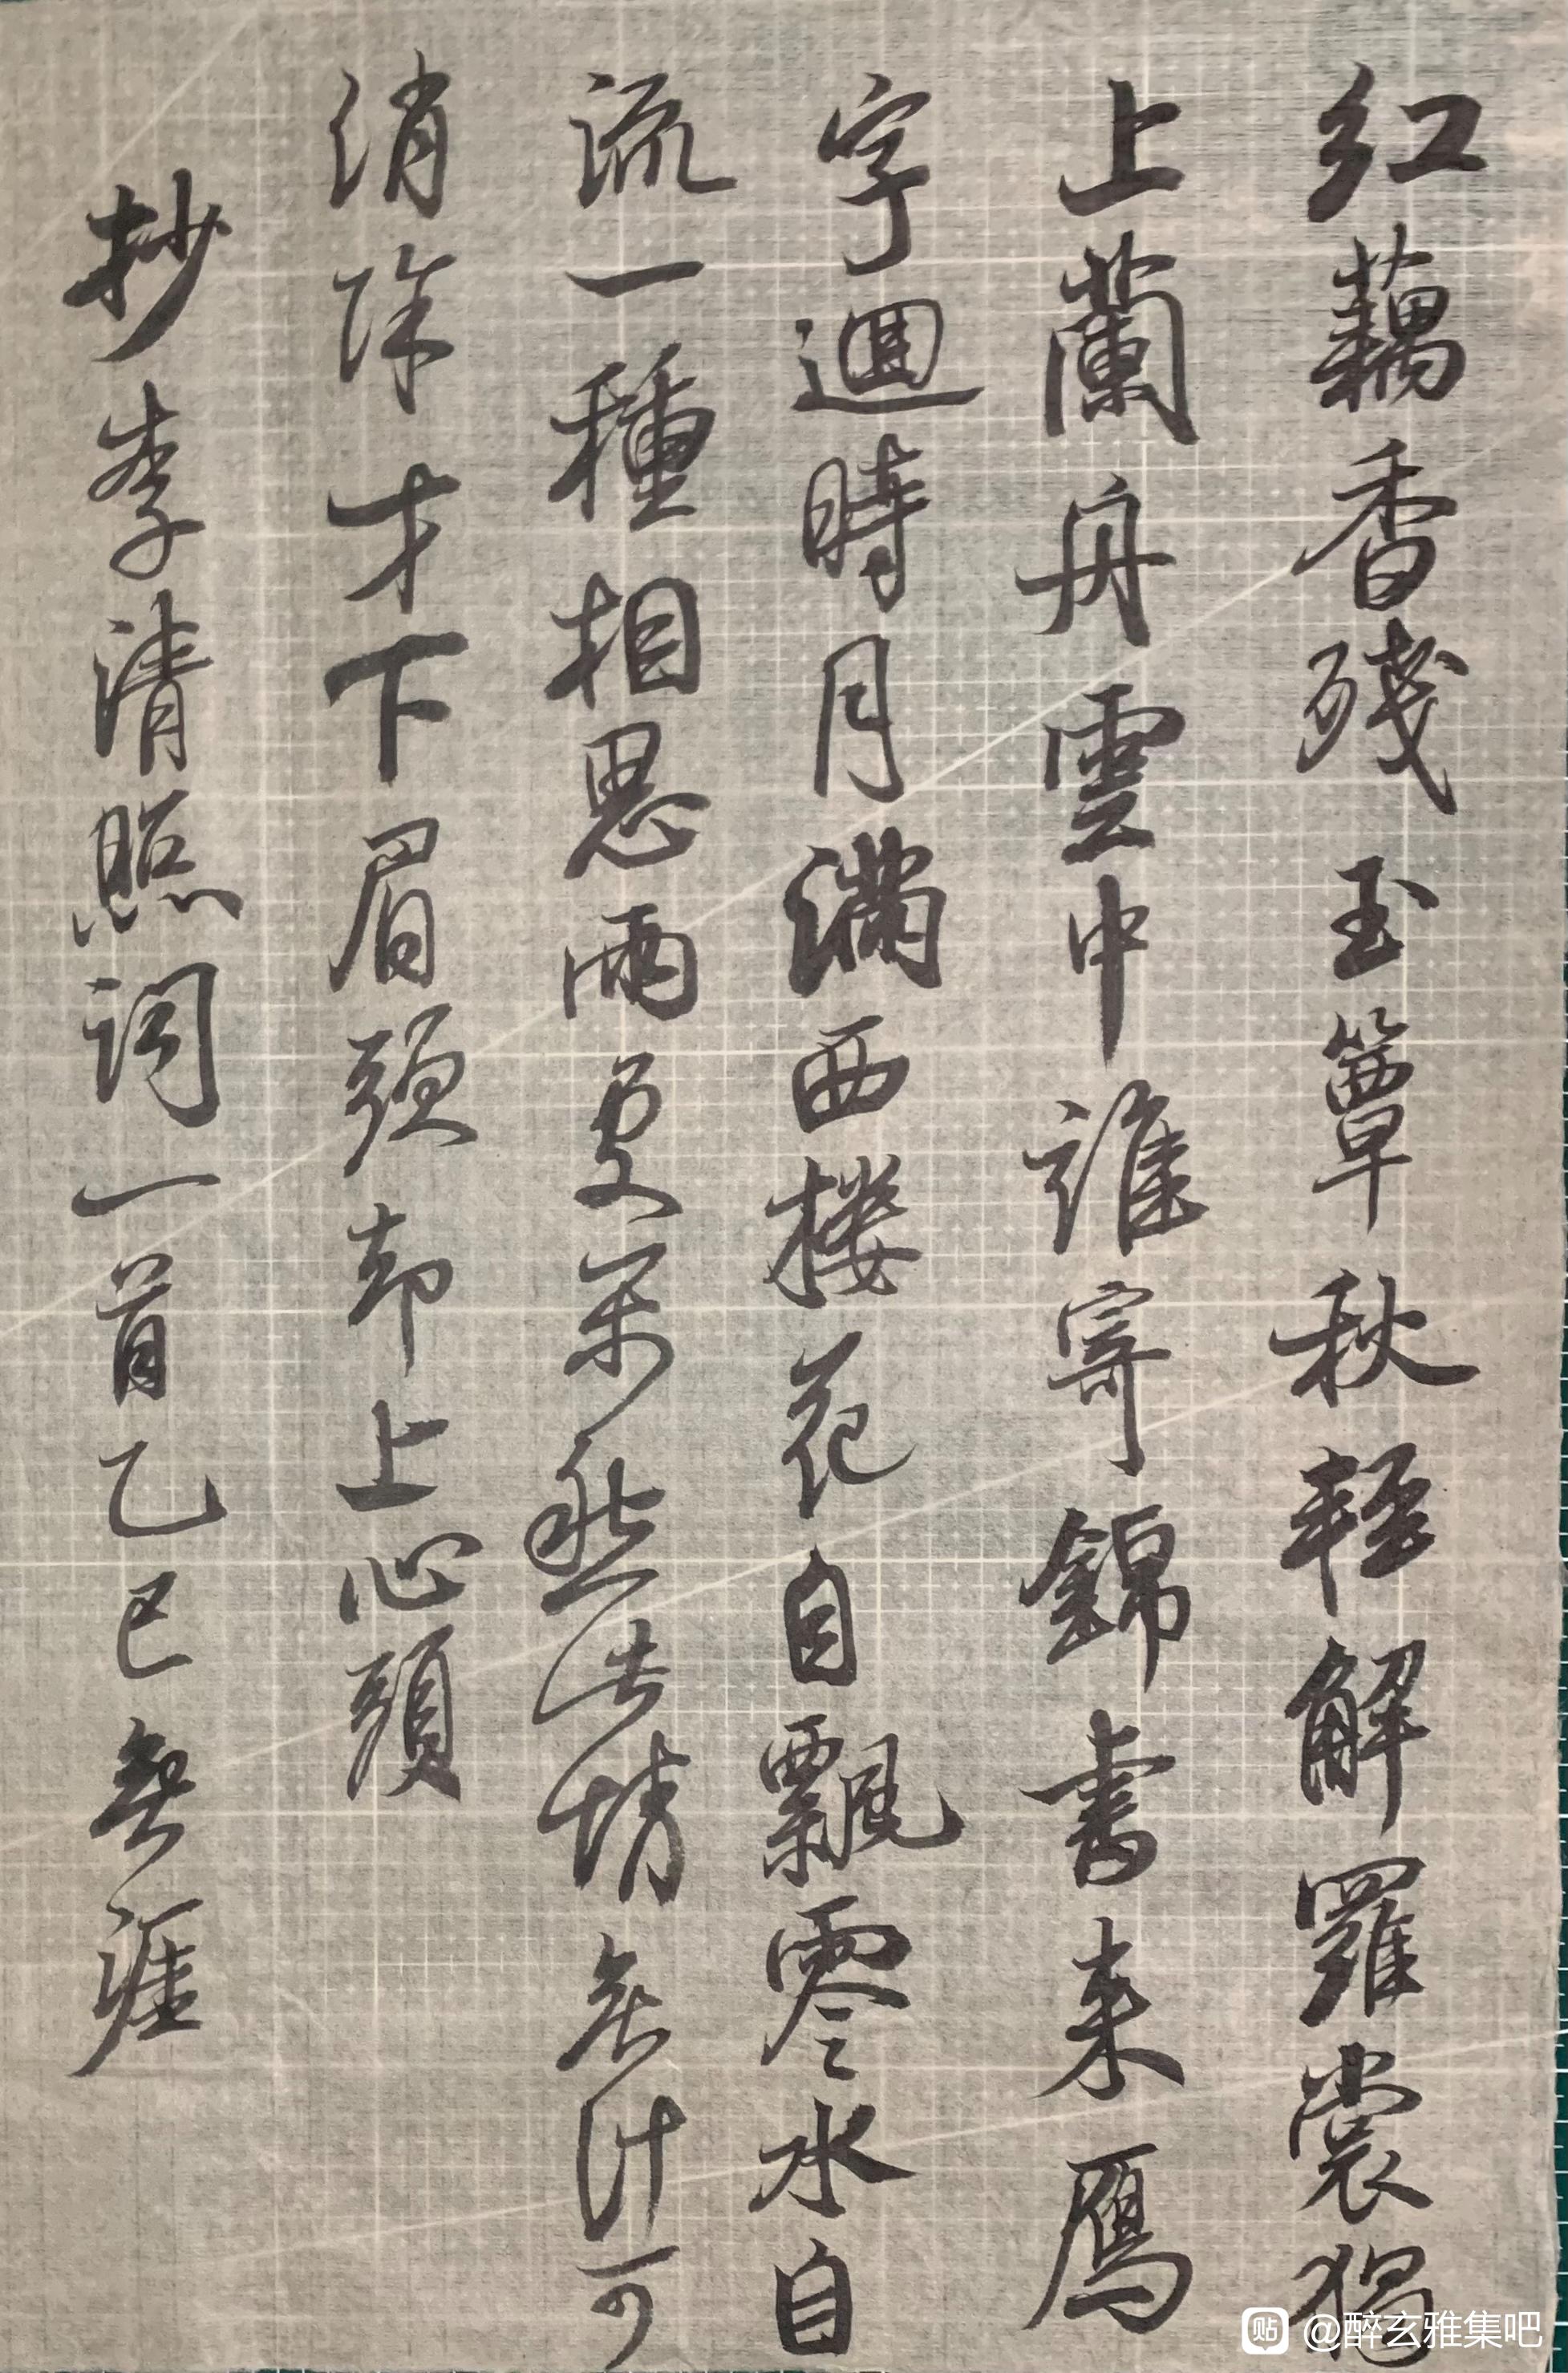 红藕香殘玉簟秋輕解羅裳獨
上蘭舟雲中誰寄錦書来鴈
字迴時月滿西楼花自飄零水自
流一種相思兩处閒愁此情无计可
消除才下眉頭却上心頭
抄李清照词一首乙巳無涯
贴 @醉玄雅集吧